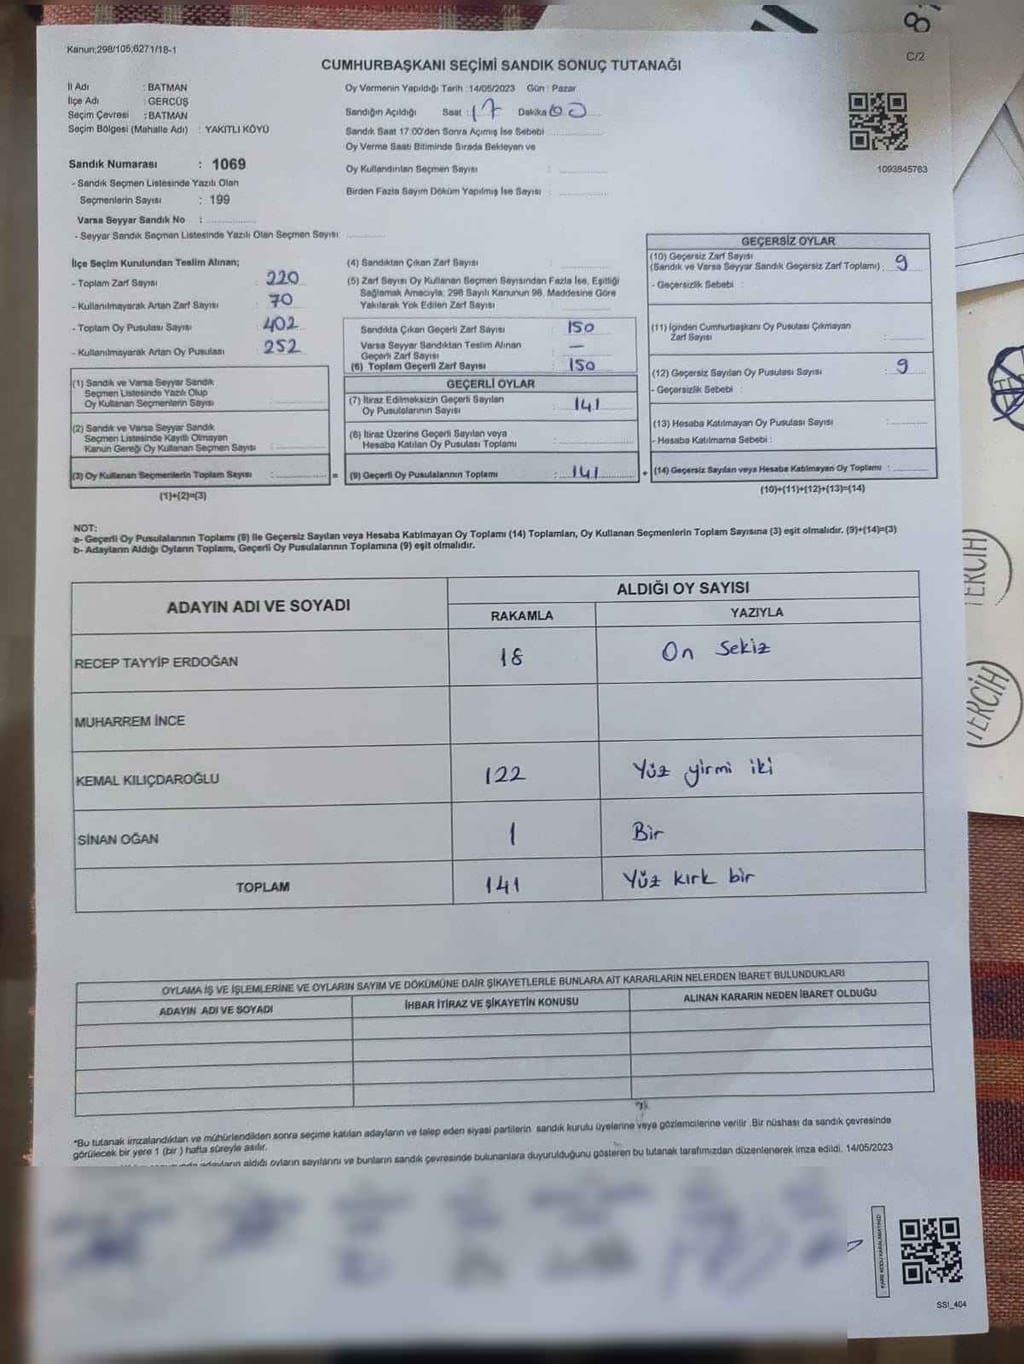 Kanun;298/105;6271/18-1
C/2
CUMHURBAŞKANI SEÇİMİ SANDIK SONUÇ TUTANAĞI
İl Adı : BATMAN
İlçe Adı : GERCÜŞ
Seçim Çevresi : BATMAN
Seçim Bölgesi (Mahalle Adı) : YAKITLI KÖYÜ
Sandık Numarası : 1069
- Sandık Seçmen Listesinde Yazılı Olan
Seçmenlerin Sayısı : 199
Varsa Seyyar Sandık No :
- Seyyar Sandık Seçmen Listesinde Yazılı Olan Seçmen Sayısı:
Oy Vermenin Yapıldığı Tarih :14/05/2023 Gün : Pazar
Sandığın Açıldığı Saat : 17 Dakika 00
Sandık Saat 17:00'den Sonra Açımış İse Sebebi
Oy Verme Saati Bitiminde Sırada Bekleyen ve
Oy Kullandırılan Seçmen Sayısı :
Birden Fazla Sayım Döküm Yapılmış İse Sayısı :
1093845763
İlçe Seçim Kurulundan Teslim Alınan;
- Toplam Zarf Sayısı : 220
- Kullanılmayarak Artan Zarf Sayısı : 70
- Toplam Oy Pusulası Sayısı : 402
- Kullanılmayarak Artan Oy Pusulası : 252
(1) Sandık ve Varsa Seyyar Sandık
Seçmen Listesinde Yazılı Olup
Oy Kullanan Seçmenlerin Sayısı :
(2) Sandık ve Varsa Seyyar Sandık
Seçmen Listesinde Kayıtlı Olmayan
Kanun Gereği Oy Kullanan Seçmen Sayısı :
(3) Oy Kullanan Seçmenlerin Toplam Sayısı :
(1)+(2)=(3)
(4) Sandıktan Çıkan Zarf Sayısı
(5) Zarf Sayısı Oy Kullanan Seçmen Sayısından Fazla İse, Eşitliği
Sağlamak Amacıyla; 298 Sayılı Kanunun 98. Maddesine Göre
Yakılarak Yok Edilen Zarf Sayısı
Sandıkta Çıkan Geçerli Zarf Sayısı : 150
Varsa Seyyar Sandıktan Teslim Alınan
Geçerli Zarf Sayısı : —
(6) Toplam Geçerli Zarf Sayısı : 150
GEÇERLİ OYLAR
(7) İtiraz Edilmeksizin Geçerli Sayılan
Oy Pusulalarının Sayısı : 141
(8) İtiraz Üzerine Geçerli Sayılan veya
Hesaba Katılan Oy Pusulası Toplamı :
= (9) Geçerli Oy Pusulalarının Toplamı : 141
GEÇERSİZ OYLAR
(10) Geçersiz Zarf Sayısı
(Sandık ve Varsa Seyyar Sandık Geçersiz Zarf Toplamı) : 9
- Geçersizlik Sebebi :
(11) İçinden Cumhurbaşkanı Oy Pusulası Çıkmayan
Zarf Sayısı :
(12) Geçersiz Sayılan Oy Pusulası Sayısı : 9
- Geçersizlik Sebebi :
(13) Hesaba Katılmayan Oy Pusulası Sayısı :
- Hesaba Katılmama Sebebi :
+ (14) Geçersiz Sayılan veya Hesaba Katılmayan Oy Toplamı :
(10)+(11)+(12)+(13)=(14)
NOT:
a- Geçerli Oy Pusulalarının Toplamı (9) ile Geçersiz Sayılan veya Hesaba Katılmayan Oy Toplamı (14) Toplamları, Oy Kullanan Seçmenlerin Toplam Sayısına (3) eşit olmalıdır. (9)+(14)=(3)
b- Adayların Aldığı Oyların Toplamı, Geçerli Oy Pusulalarının Toplamına (9) eşit olmalıdır.
ADAYIN ADI VE SOYADI
ALDIĞI OY SAYISI
RAKAMLA YAZIYLA
RECEP TAYYİP ERDOĞAN 18 On sekiz
MUHARREM İNCE
KEMAL KILIÇDAROĞLU 122 Yüz yirmi iki
SİNAN OĞAN 1 Bir
TOPLAM 141 Yüz kırk bir
OYLAMA İŞ VE İŞLEMLERİNE VE OYLARIN SAYIM VE DÖKÜMÜNE DAİR ŞİKAYETLERLE BUNLARA AİT KARARLARIN NELERDEN İBARET BULUNDUKLARI
ADAYIN ADI VE SOYADI İHBAR İTİRAZ VE ŞİKAYETİN KONUSU ALINAN KARARIN NEDEN İBARET OLDUĞU
*Bu tutanak imzalandıktan ve mühürlendikten sonra seçime katılan adayların ve talep eden siyasi partilerin sandık kurulu üyelerine veya gözlemcilerine verilir .Bir nüshası da sandık çevresinde
görülecek bir yere 1 (bir ) hafta süreyle asılır.
adayların aldığı oyların sayılarını ve bunların sandık çevresinde bulunanlara duyurulduğunu gösteren bu tutanak tarafımızdan düzenlenerek imza edildi. 14/05/2023
SSI_404
TERCİH
TERCİH